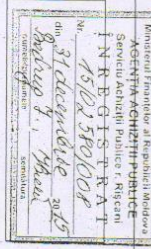 Ministerul Finanțelor al Republicii Moldova
AGENȚIA ACHIZIȚII PUBLICE
Serviciu Achiziții Publice r. Rîșcani
ÎNREGISTRAT
Nr. 15/02580/008
din 31 decembrie 2015
numele, prenumele semnătura